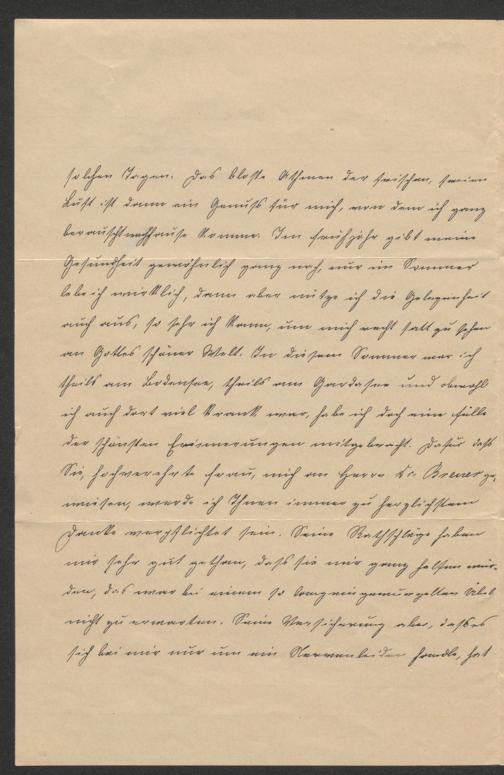 solchen Tagen. Das bloße Athmen der frischen, freien
Luft ist dann ein Genuss für mich, von dem ich ganz
berauscht nachhause komme. Im Frühjahr gibt meine
Gesundheit gewöhnlich ganz nach, nur im Sommer
lebe ich wirklich, dann aber nütze ich die Gelegenheit
auch aus, so sehr ich kann, um mich recht satt zu sehen
an Gottes schöner Welt. In diesem Sommer war ich
theils am Bodensee, theils am Gardasee und obwohl
ich auch dort viel krank war, habe ich doch eine Fülle
der schönsten Erinnerungen mitgebracht. Dafür daß
Sie, hochverehrte Frau, mich an Herrn Dr. Breuer ge-
wiesen, werde ich Ihnen immer zu herzlichstem
Danke verpflichtet sein. Seine Rathschläge haben
mir sehr gut gethan, daß sie mir ganz helfen wür-
den, das war bei einem so lang eingewurzelten Übel
nicht zu erwarten. Seine Versicherung aber, daß es
sich bei mir nur um ein Nervenleiden handle, hat